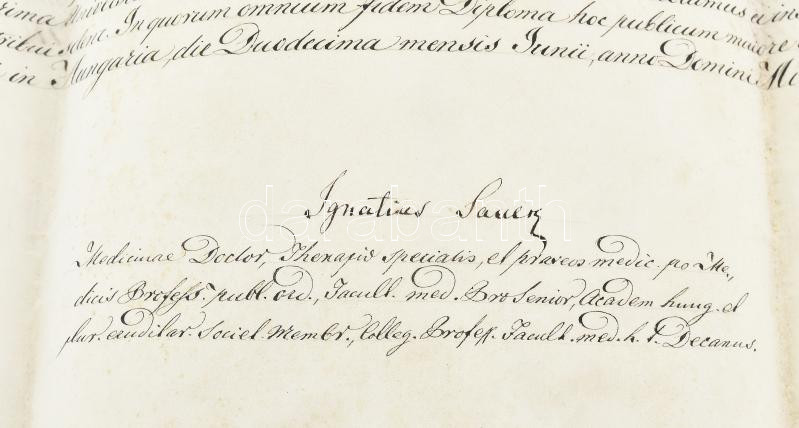 In quorum omnium fidem Diploma hoc publicum
in Hungaria, die Duodecima mensis Junii, anno Domini
darabanth
Ignatius Sauer
Medicinae Doctor, Therapiae specialis, et praxeos medic. pro Me„
dicis Profess. publ. ord., Facult. med. ProSenior, Academ hung. et
plur. eruditar. Societ. Membr., Colleg. Profess. Facult. med. h. t. Decanus.